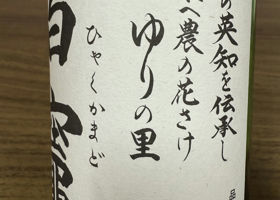 の英知を伝承し
へ農の花さけ
ゆりの里
ひゃくかまど